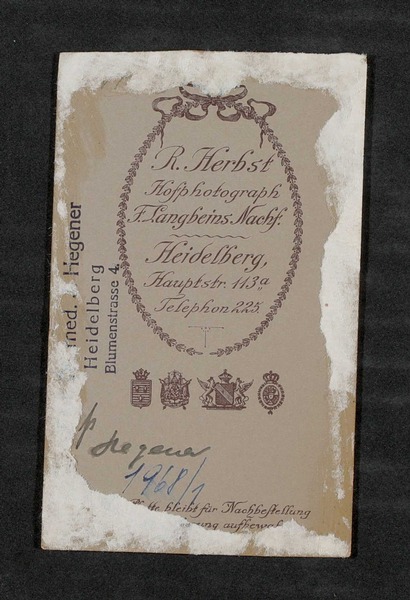 R. Herbst
Hofphotograph
F. Langbeins Nachf.
Heidelberg,
Hauptstr. 113a
Telephon 225.
med. Hegener
Heidelberg
Blumenstrasse 4.
Hegener
1968/1
bleibt für Nachbestellung
aufbewa